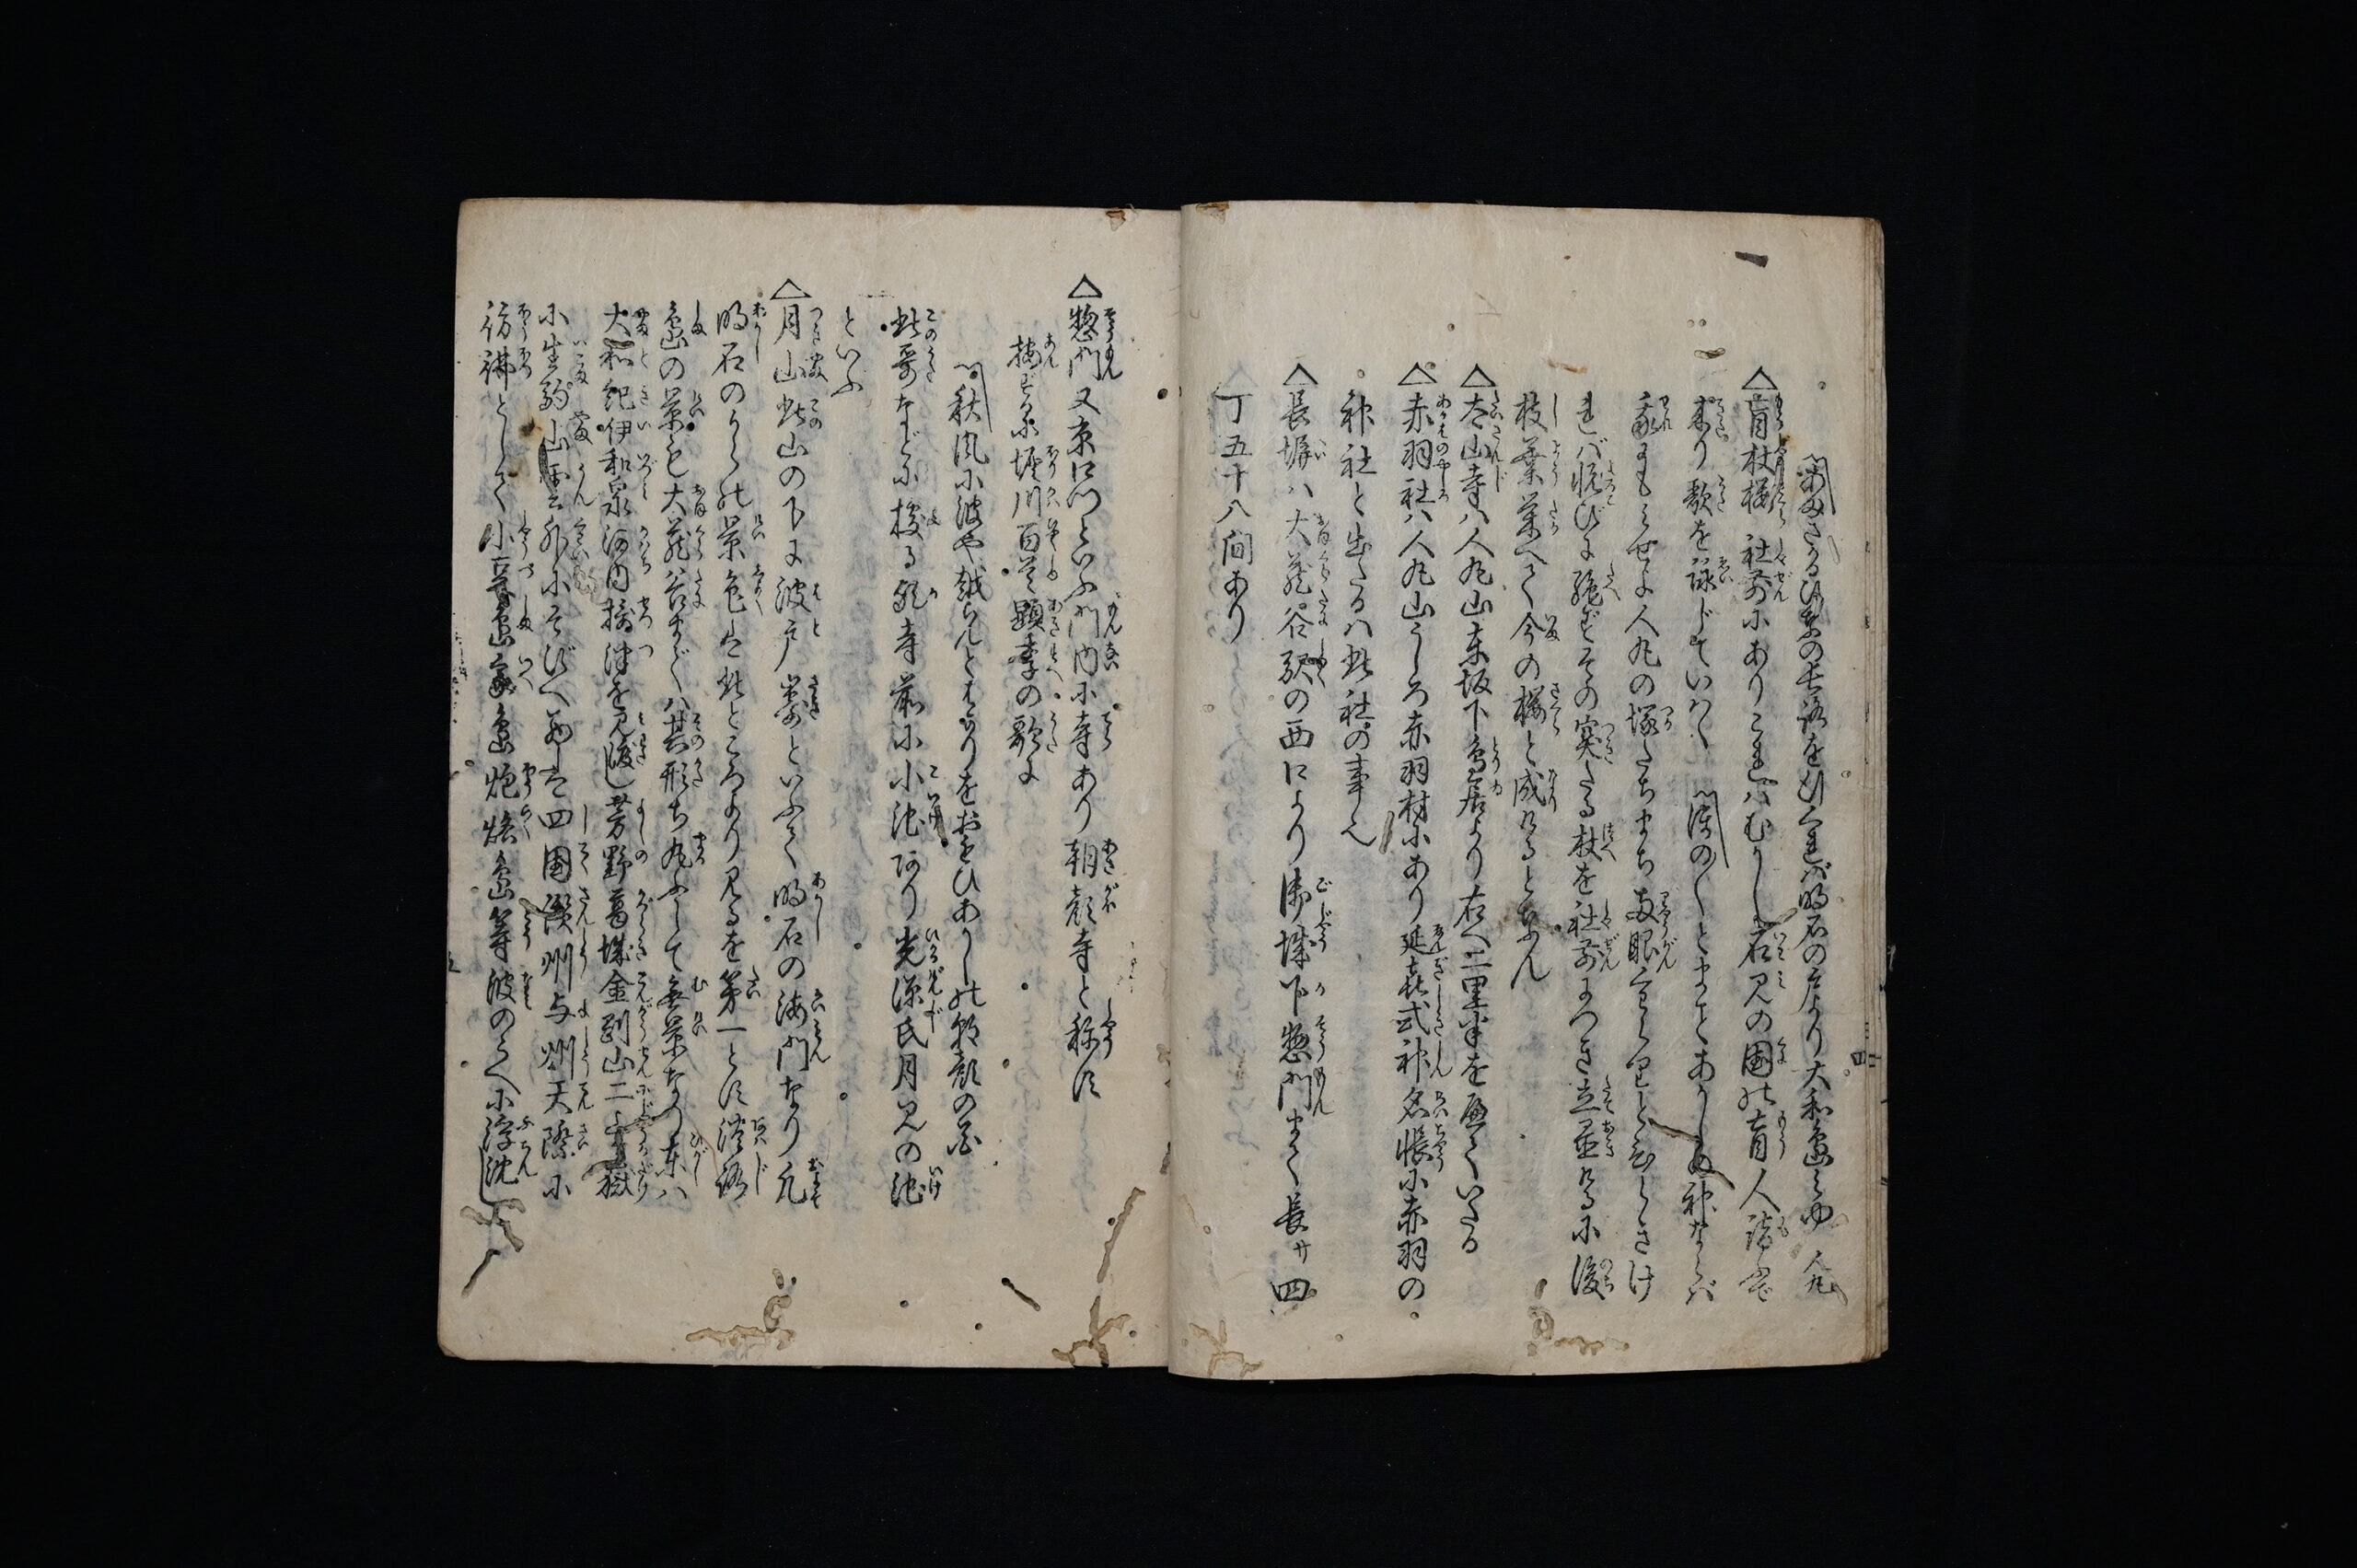 天ざかるひなの長路を行くれば明石の戸より大和島見ゆ 人丸
△盲杖桜 社前にありこれはむかし石見の国の盲人詣ふで
来り歌を詠じていはく ほの〱とまことあかしの神ならば
我にも見せよ人丸の塚たちまち両眼
れば悦びに絶ずその突たる杖を社前につき立置けるに後
枝葉栄へて今の桜と成けるとなん
△太山寺ハ人丸山東坂下鳥居より右へ二里半を歴ていたる
△赤羽社ハ人丸山うしろ赤羽村にあり延喜式神名帳に赤羽の
神社と出たるハ此社の事也
△長塀ハ大蔵谷駅の西口より御城下惣門まで長サ四
丁五十八間あり
△惣門又京口門といふ門内に寺あり朝顔寺と称す
按ずるに堀川百首顕季の歌に
秋風に波や越らんと あかしの朝顔の花
此哥などに 寺前に小池あり光源氏月見の池
といふ
△月山此山の下に波戸崎といふて明石の海門なり凡
明石のうらの景色は此ところより見るを第一とす淡路
島山の景も大蔵谷まぢハ其形ち丸ふして無景なり東ハ
大和紀伊和泉河内摂津を見渡し芳野葛城金剛山二上嶽
に生駒山雲外にそびへ 四国讃州与州天際に
彷彿として小豆島家島炮烙島等波のうへに浮沈し